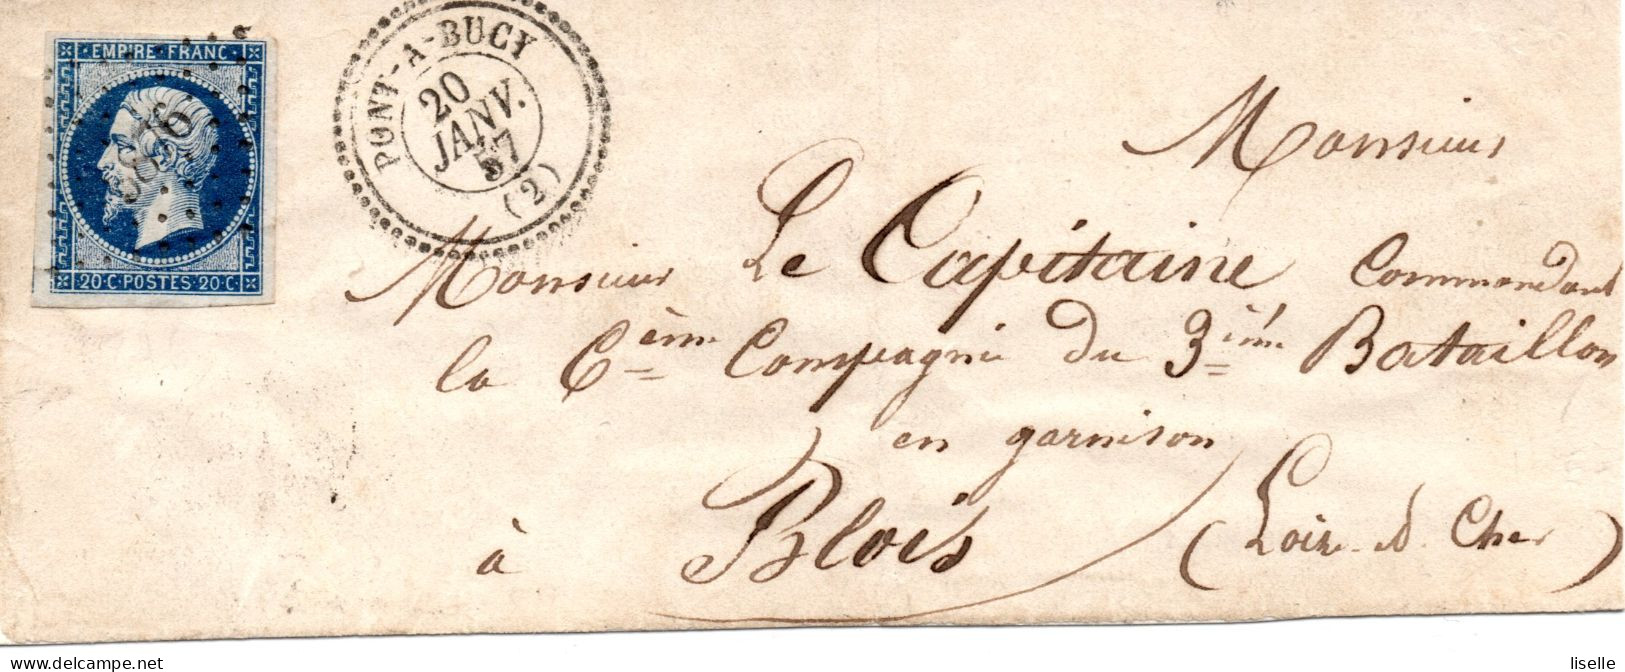 EMPIRE·FRANC·
20·C·POSTES·20·C·
PONT-A-BUCY
20
JANV.
57
(2)
Monsieur
Monsieur Le Capitaine Commandant
la 6ème Compagnie du 3ième Bataillon
en garnison
à Blois (Loir-et-Cher)
www.delcampe.net
liselle